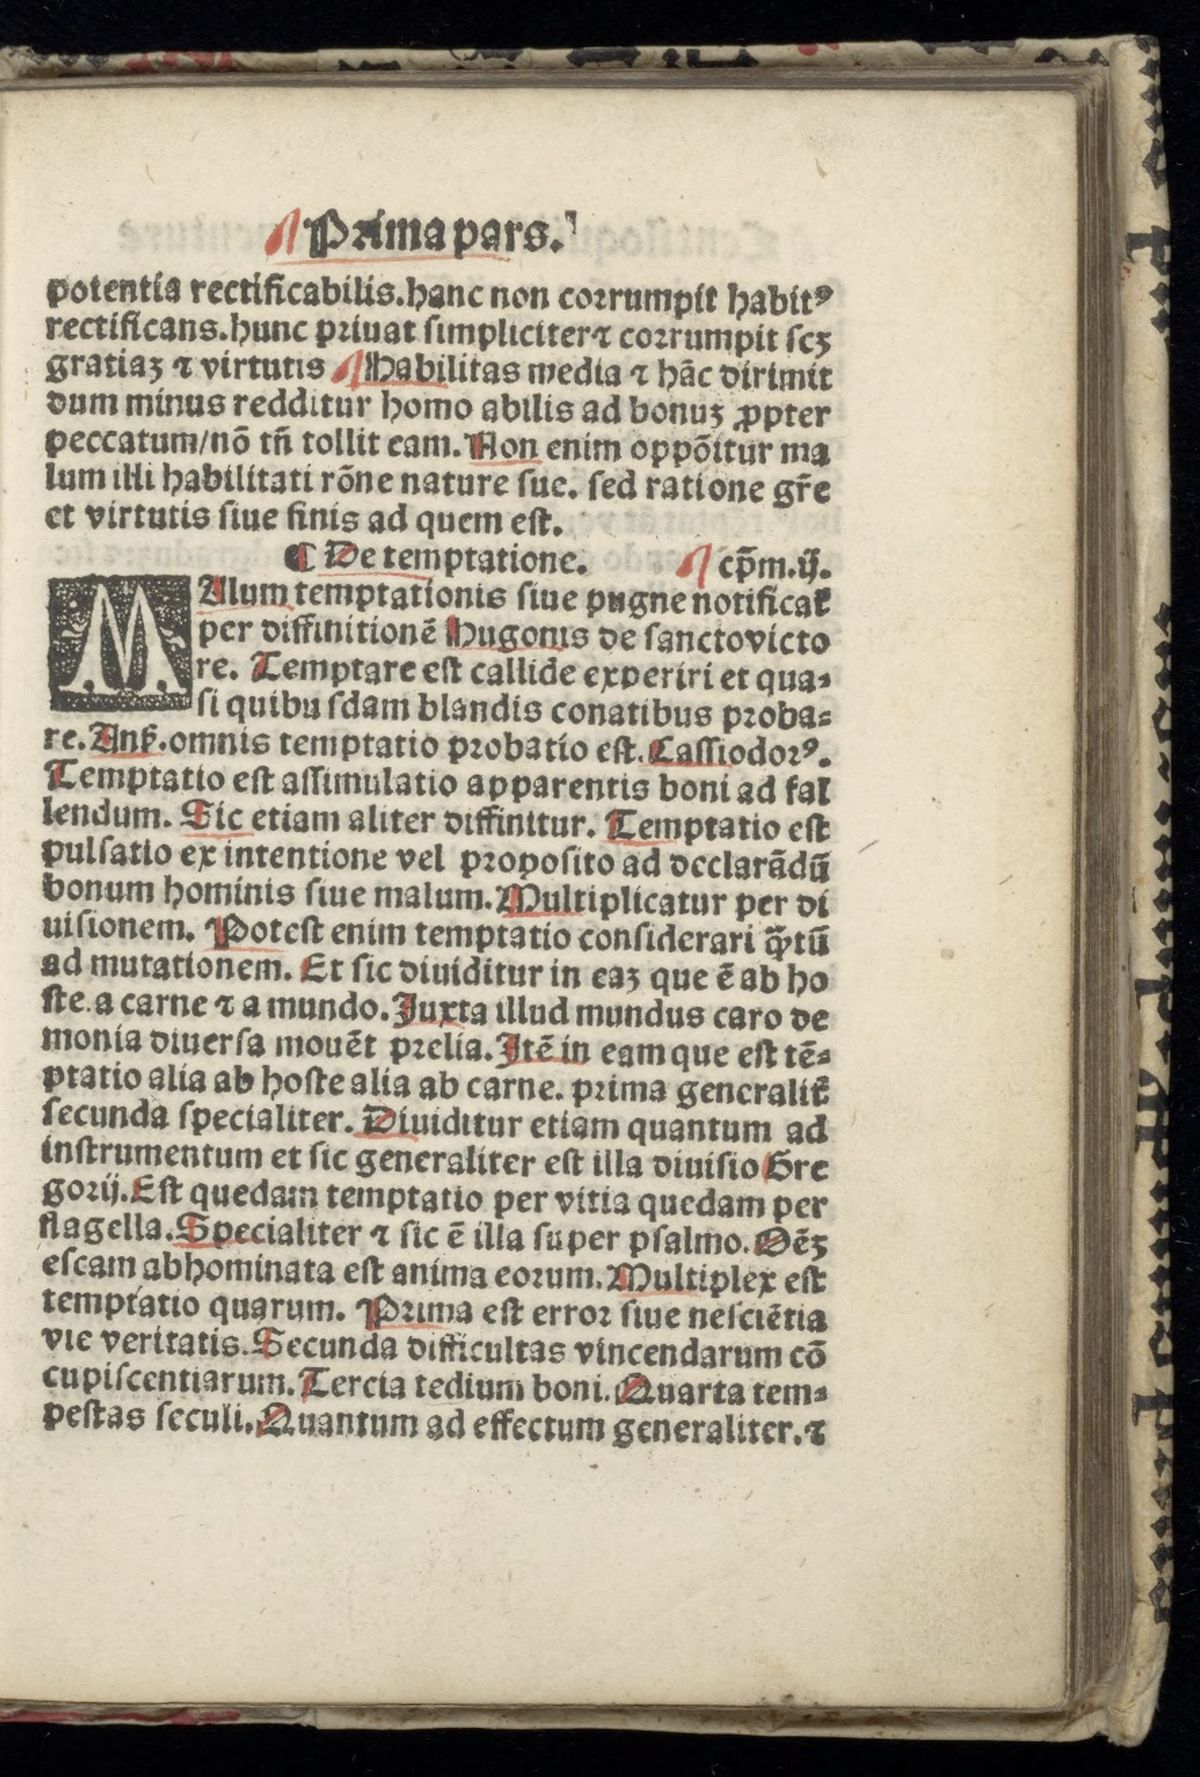 Prima pars.
potentia rectificabilis.hanc non corrumpit habitꝰ
rectificans.hunc priuat simpliciter⁊ corrumpit scꝫ
gratiaꝫ ⁊ virtutis Habilitas media ⁊ hāc dirimit
dum minus redditur homo abilis ad bonuꝫ ꝓpter
peccatum/nō tn̄ tollit eam. Non enim oppōitur ma
lum illi habilitati rōne nature sue. sed ratione gr̄e
et virtutis siue finis ad quem est.
¶ De temptatione. cp̄m.ij.
MAlum temptationis siue pugne notificat̄
per diffinitionē Hugonis de sanctovicto
re. Temptare est callide experiri et qua⸗
si quibusdam blandis conatibus proba⸗
re. omnis temptatio probatio est. Cassiodorꝰ.
Temptatio est assimulatio apparentis boni ad fal
lendum. Sic etiam aliter diffinitur. Temptatio est
pulsatio ex intentione vel proposito ad declarādū
bonum hominis siue malum. Multiplicatur per di
uisionem. Potest enim temptatio considerari q̄tū
ad mutationem. Et sic diuiditur in eaꝫ que ē ab ho
ste.a carne ⁊ a mundo. Juxta illud mundus caro de
monia diuersa mouēt prelia. Jtē in eam que est tē⸗
ptatio alia ab hoste alia ab carne. prima generalit̄
secunda specialiter. Diuiditur etiam quantum ad
instrumentum et sic generaliter est illa diuisio Gre
gorij. Est quedam temptatio per vitia quedam per
flagella. Specialiter ⁊ sic ē illa super psalmo. Oēꝫ
escam abhominata est anima eorum. Multiplex est
temptatio quarum. Prima est error siue nesciētia
vie veritatis. Secunda difficultas vincendarum cō
cupiscentiarum. Tercia tedium boni. Quarta tem⸗
pestas seculi. Quantum ad effectum generaliter. ⁊